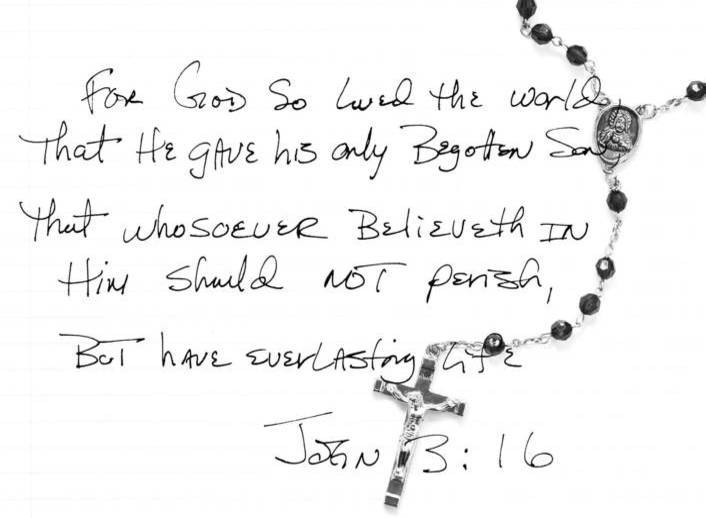 For God So Loved the world,
That He gave his only Begotten Son
That whosoever Believeth IN
Him should NOT perish,
But have everlasting life
John 3:16